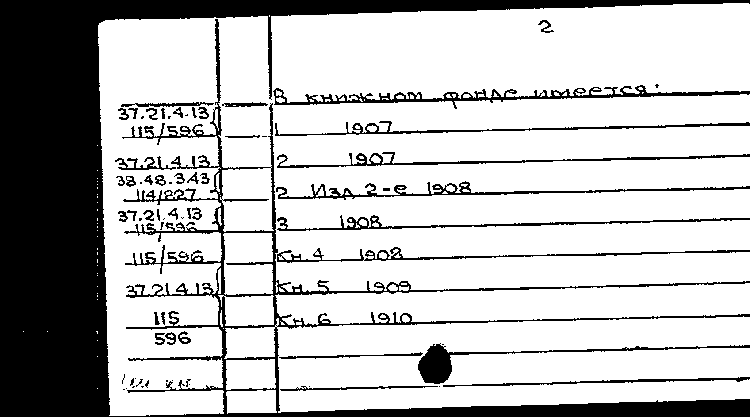 2
В книжном фонде имеется:
37.21.4.13
115/596 1 1907
37.21.4.13 2 1907
38.48.3.43
114/227 2 Изд 2-е 1908
37.21.4.13
115/596 3 1908
115/596 Кн. 4 1908
37.21.4.13 Кн. 5 1909
115 Кн. 6 1910
596
кн.